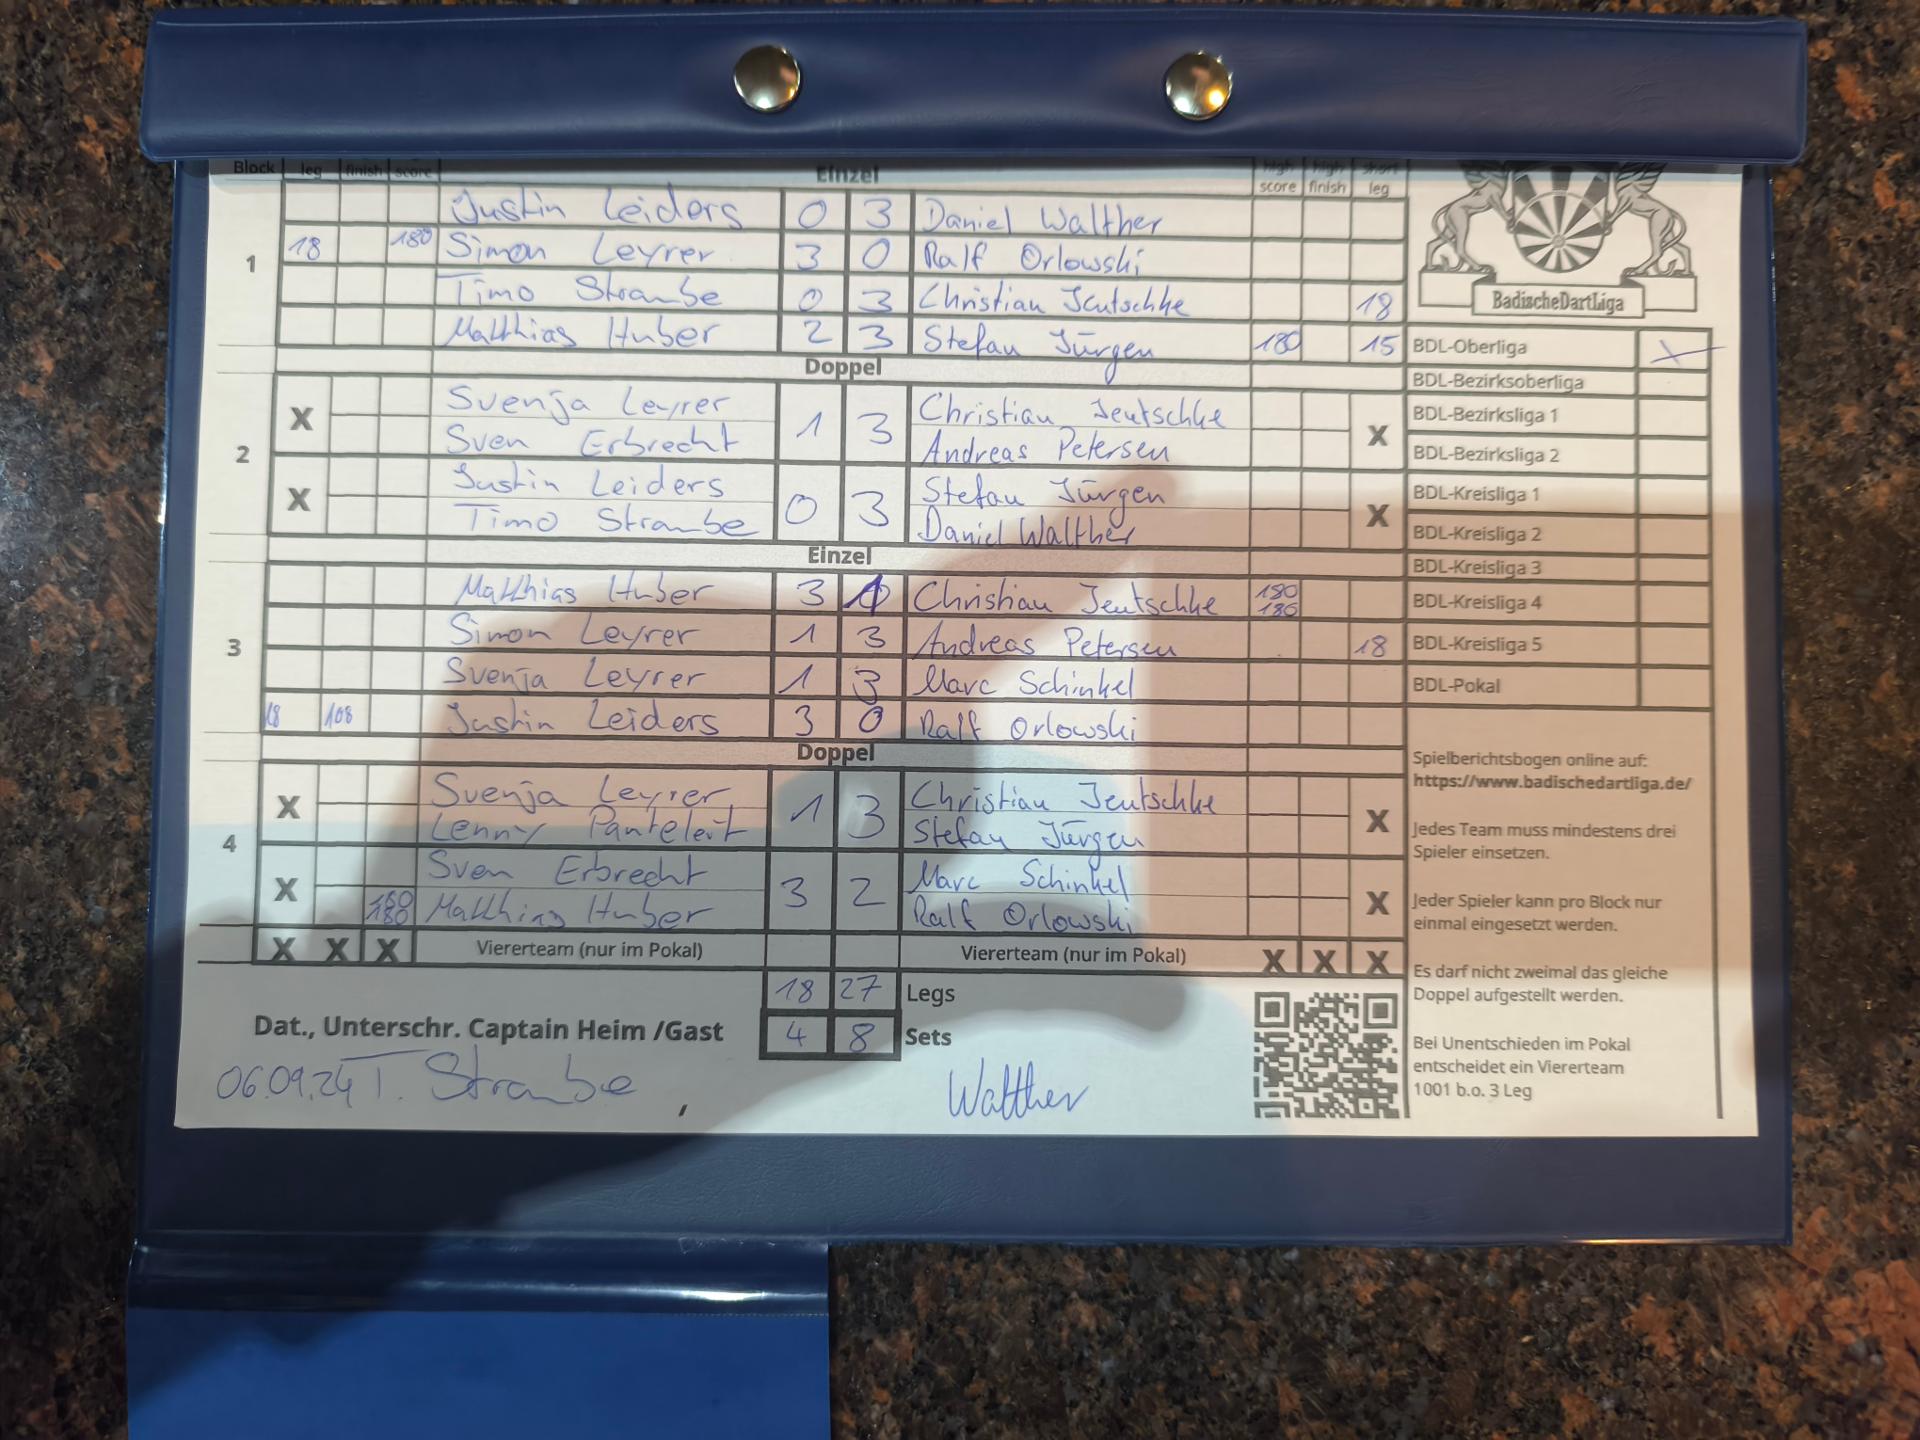 Block leg finish score Einzel high score high finish short leg
1
Justin Leiders 0 3 Daniel Walther
18 180 Simon Leyrer 3 0 Ralf Orlowski
Timo Straube 0 3 Christian Jeutschke 18
Matthias Huber 2 3 Stefan Jürgen 180 15
Doppel
2
X Svenja Leyrer 1 3 Christian Jeutschke X
Sven Erbrecht Andreas Petersen
X Justin Leiders 0 3 Stefan Jürgen X
Timo Straube Daniel Walther
Einzel
3
Matthias Huber 3 1 Christian Jeutschke 180 180
Simon Leyrer 1 3 Andreas Petersen 18
Svenja Leyrer 1 3 Marc Schinkel
18 108 Justin Leiders 3 0 Ralf Orlowski
Doppel
4
X Svenja Leyrer 1 3 Christian Jeutschke X
Lenny Panteleit Stefan Jürgen
X Sven Erbrecht 3 2 Marc Schinkel X
180 180 Matthias Huber Ralf Orlowski
X X X Viererteam (nur im Pokal) Viererteam (nur im Pokal) X X X
18 27 Legs
4 8 Sets
Dat., Unterschr. Captain Heim /Gast
06.09.24 T. Straube Walther
BadischeDartLiga
BDL-Oberliga X
BDL-Bezirksoberliga
BDL-Bezirksliga 1
BDL-Bezirksliga 2
BDL-Kreisliga 1
BDL-Kreisliga 2
BDL-Kreisliga 3
BDL-Kreisliga 4
BDL-Kreisliga 5
BDL-Pokal
Spielberichtsbogen online auf:
https://www.badischedartliga.de/
Jedes Team muss mindestens drei
Spieler einsetzen.
Jeder Spieler kann pro Block nur
einmal eingesetzt werden.
Es darf nicht zweimal das gleiche
Doppel aufgestellt werden.
Bei Unentschieden im Pokal
entscheidet ein Viererteam
1001 b.o. 3 Leg